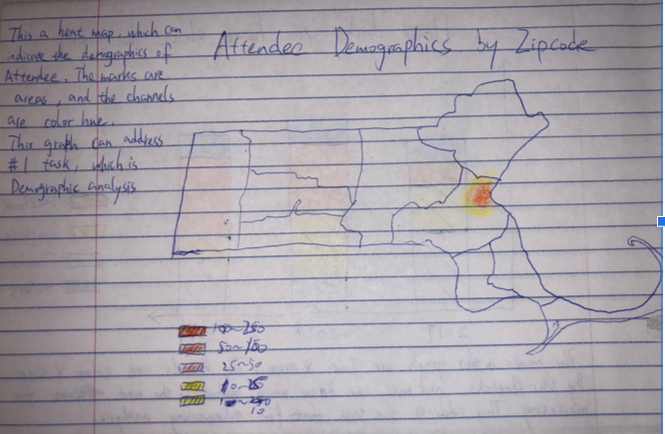 This a heat map, which can
indicate the demographics of
Attendee. The marks are
areas, and the channels
are color hue.
This graph can address
#1 task, which is
Demographic analysis
Attendee Demographics by Zipcode
50~100
25~50
10